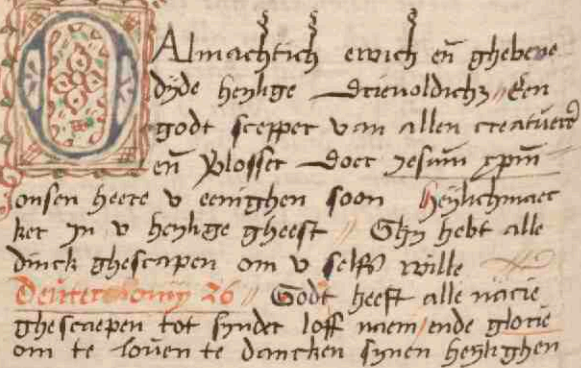 O Almachtich ewich en̄ ghebene
dyde heylige drievoldich3 // Een
godt scepper van allen creatuerē
en̄ v̄losser doer jesum xpm̄
onsen heere v eenighen soon heylichmaec
ker jn v heylige gheest // Ghy hebt alle
dinck ghescapen om v selfs wille
Deuteronomij 26 // Godt heeft alle nacie
ghescaepen tot synder loff naem / ende glorie
om te loven te dancken synen heylighen